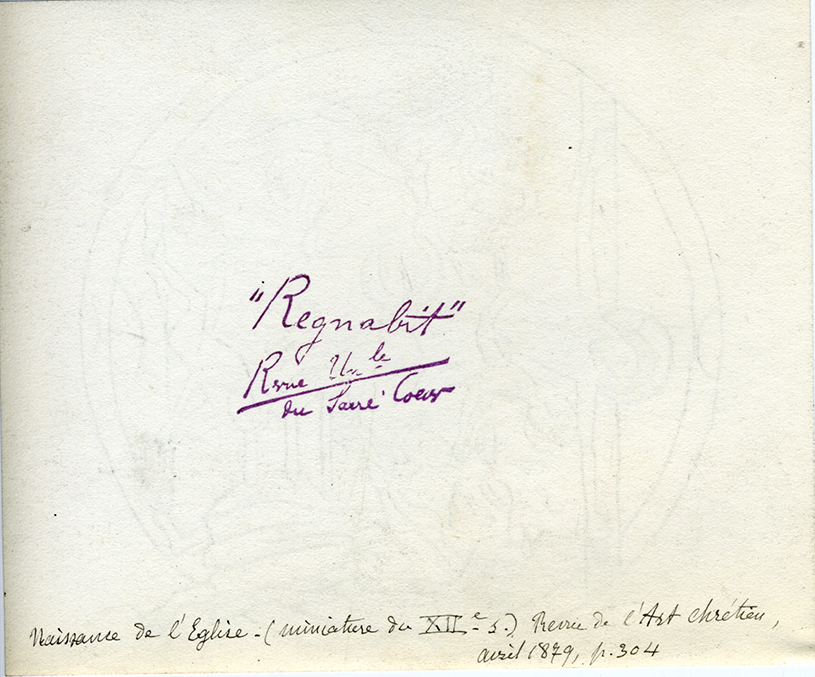 "Regnabit"
Revue Un.le
du Sacré-Coeur
Naissance de l'Eglise - (miniature du XIIe s.) Revue de l'Art chrétien,
avril 1879, p. 304